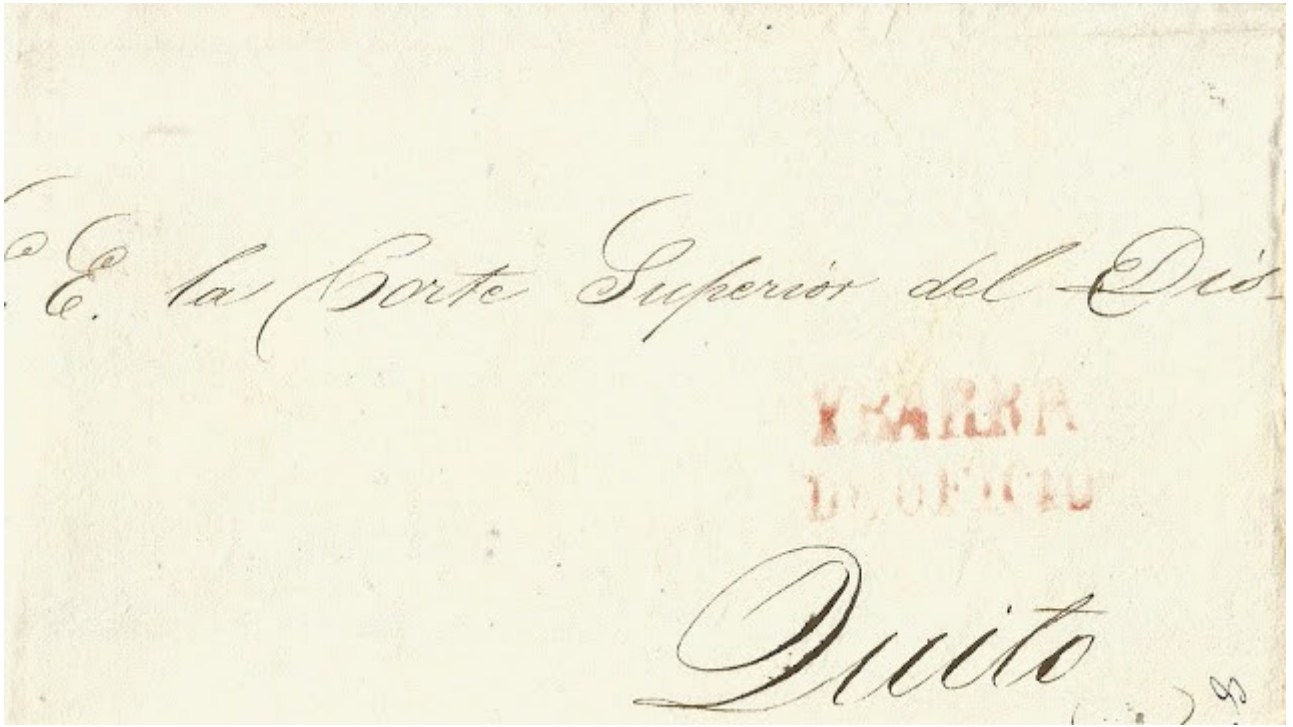 E. la Corte Superior del Dis-
YBARRA
DE OFICIO
Quito